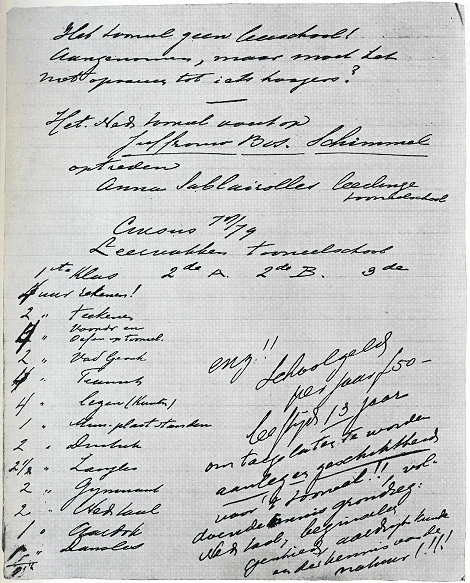 Het tooneel geen leerschool!
Aangenomen, maar moet het
niet opvoeren tot iets hoogers?
Het Ned. tooneel voorop
Juffrouw Bes. Schimmel
optreden
Anna Sablairolles leerlinge
tooneelschool
Cursus 78/79
Leervakken tooneelschool
1ste Klas 2de A. 2de B. 3de
4 uur rekenen!
2 " teekenen
4 " Voordr en
Oefen op tooneel.
2 " Vad Gesch
4 " Fransch
4 " lezen (Kunst)
1 " Mim. plast. standen
2 " Duitsch
2 1/2 " Zangles
2 " Gymnast
2 " Ned taal
1 "
Dansles
enz!!
Schoolgeld
per jaar f 50-
leeftijd 13 jaar
om toegelaten te worden
aanleg en geschiktheid
voor 't tooneel!!, vol-
doende kennis grondreg:
Ned taal, beginselen
geschied aardrijkskunde
en der kennis van de
natuur!!!!